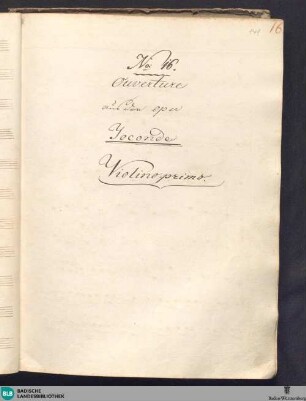 16
No. 16.
Ouverture
aus der oper
Joconde
Violino primo.
BLB BADISCHE
LANDESBIBLIOTHEK
Baden-Württemberg